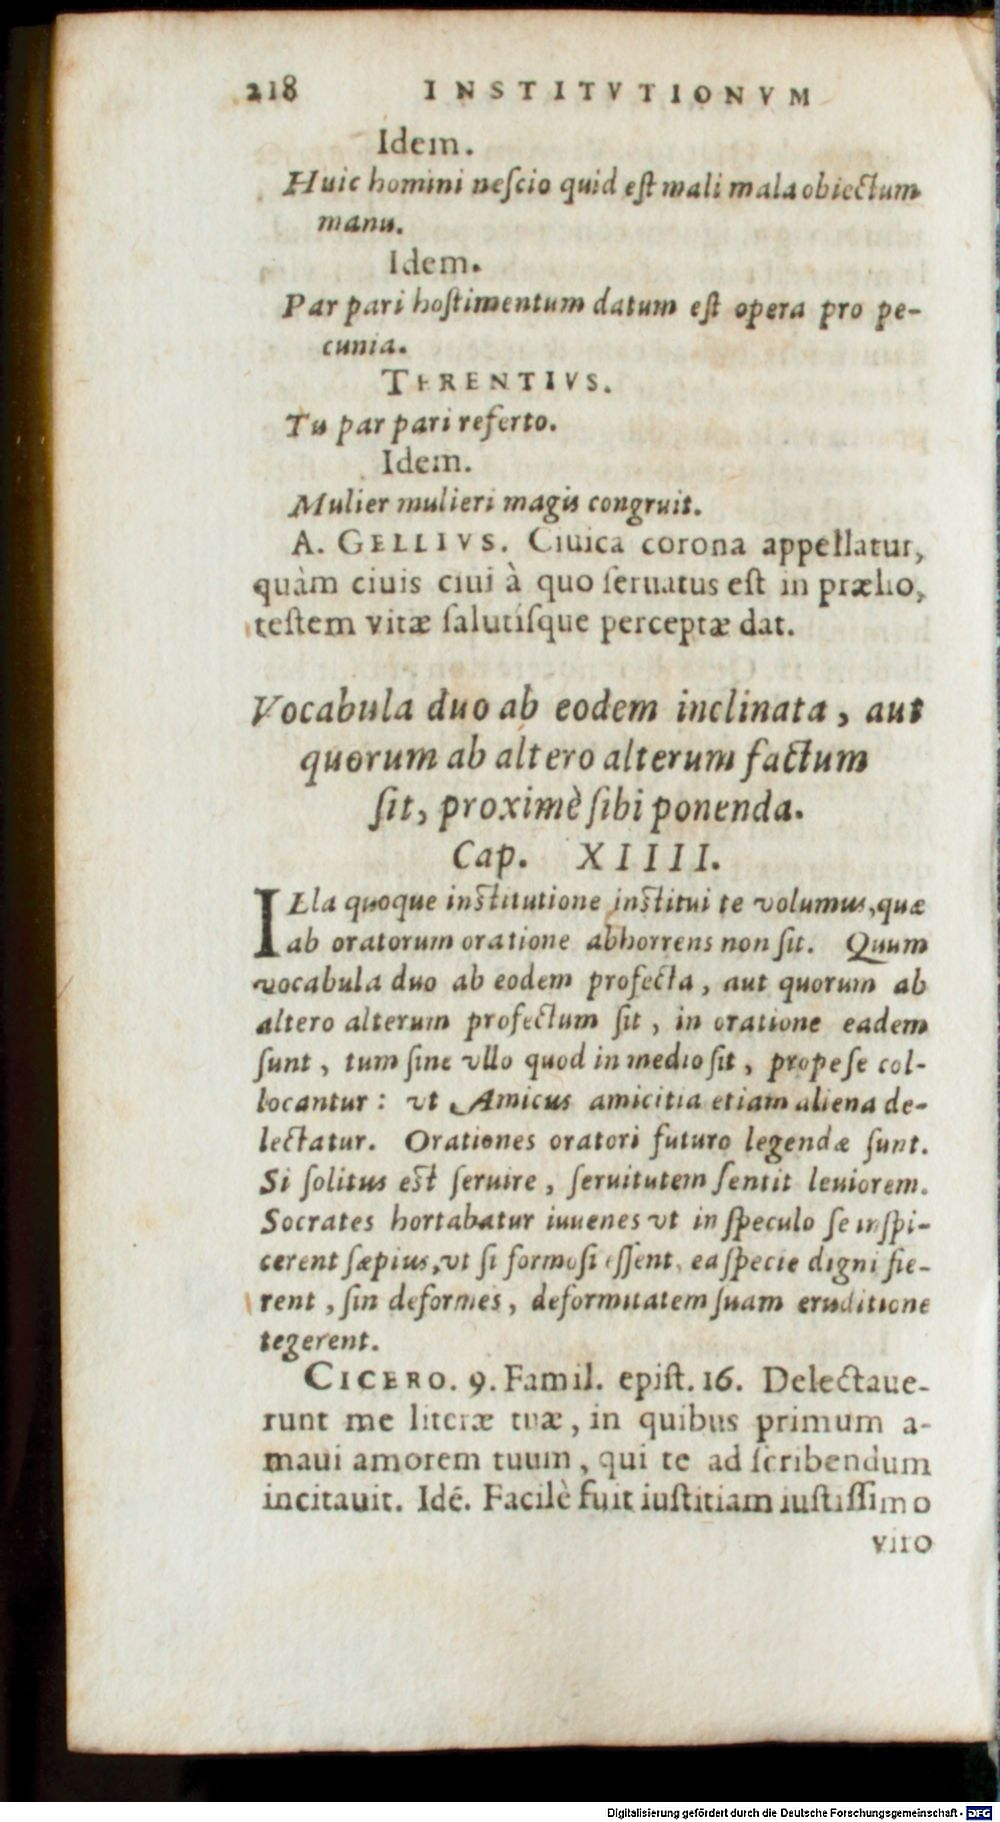 218 INSTITVTIONVM
Idem.
Huic homini neſcio quid eſt mali mala obiectum
manu.
Idem.
Par pari hoſtimentum datum eſt opera pro pe-
cunia.
TERENTIVS.
Tu par pari referto.
Idem.
Mulier mulieri magis congruit.
A. GELLIVS. Ciuica corona appellatur,
quàm ciuis ciui à quo ſeruatus eſt in prælio,
teſtem vitæ ſalutiſque perceptæ dat.
Vocabula duo ab eodem inclinata, aut
quorum ab altero alterum factum
ſit, proximè ſibi ponenda.
Cap. XIIII.
ILla quoque inſtitutione inſtitui te volumus, quæ
ab oratorum oratione abhorrens non ſit. Quum
vocabula duo ab eodem profecta, aut quorum ab
altero alterum profectum ſit, in oratione eadem
ſunt, tum ſine vllo quod in medio ſit, prope ſe col-
locantur: vt Amicus amicitia etiam aliena de-
lectatur. Orationes oratori futuro legendæ ſunt.
Si ſolitus eſt ſeruire, ſeruitutem ſentit leuiorem.
Socrates hortabatur iuuenes vt in ſpeculo ſe inſpi-
cerent ſæpius, vt ſi formoſi eſſent, ea ſpecie digni fie-
rent, ſin deformes, deformitatem ſuam eruditione
tegerent.
CICERO. 9. Famil. epiſt. 16. Delectaue-
runt me literæ tuæ, in quibus primum a-
maui amorem tuum, qui te ad ſcribendum
incitauit. Idē. Facilè fuit iuſtitiam iuſtiſſimo
viro
Digitalisierung gefördert durch die Deutsche Forschungsgemeinschaft - DFG